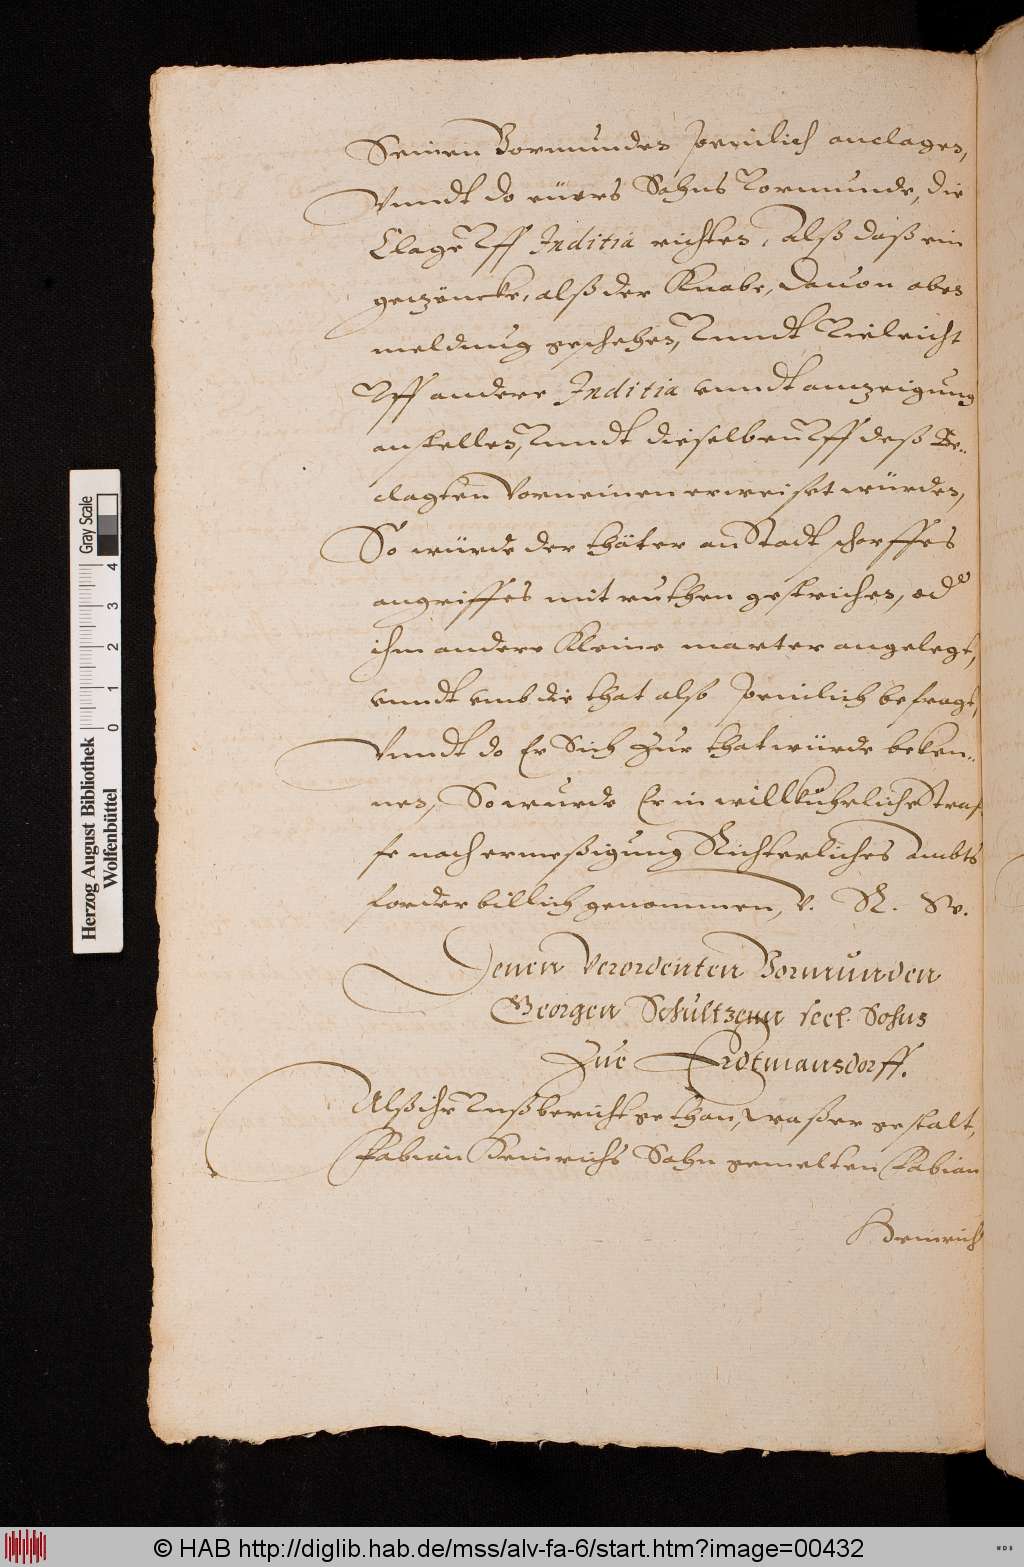 Seinen Vormunden peinlich anclagen,
Vnndt do euers Sohns Vormunde, die
Clage Vff Inditia richten, Alß daß ein
gezencke, alß der Knabe, dauon oben
meldung geschehen, Vnndt Vieleicht
Vff andere Inditia vnndt anzeigung
anstellen, Vnndt dieselben Vff deß Be-
clagten Vorneinen erweiset würden,
So würde der thäter an Stadt scharffes
angriffes mit ruthen gestrichen, od
ihm andere Kleine marter angelegt,
vnndt vmb die that also peinlich befragt,
Vnndt do Er Sich Zur that würde beken-
nen, So wurde Er in willkuhrliche Straf
fe nach ermeßigung Richterliches Ambts
forder billich genommen, V. R. W.
Denen Verordenten Vormunden
Georgen Schultzenn seel. Sohns
Zue Erdtmansdorff.
Alß ihr Vnß bericht gethan, waßer gestalt,
Fabian Heinrichs Sohn gemelten Fabian
Heinrich
Herzog August Bibliothek
Wolfenbüttel
0 1 2 3 4
Gray Scale
© HAB http://diglib.hab.de/mss/alv-fa-6/start.htm?image=00432
WDB